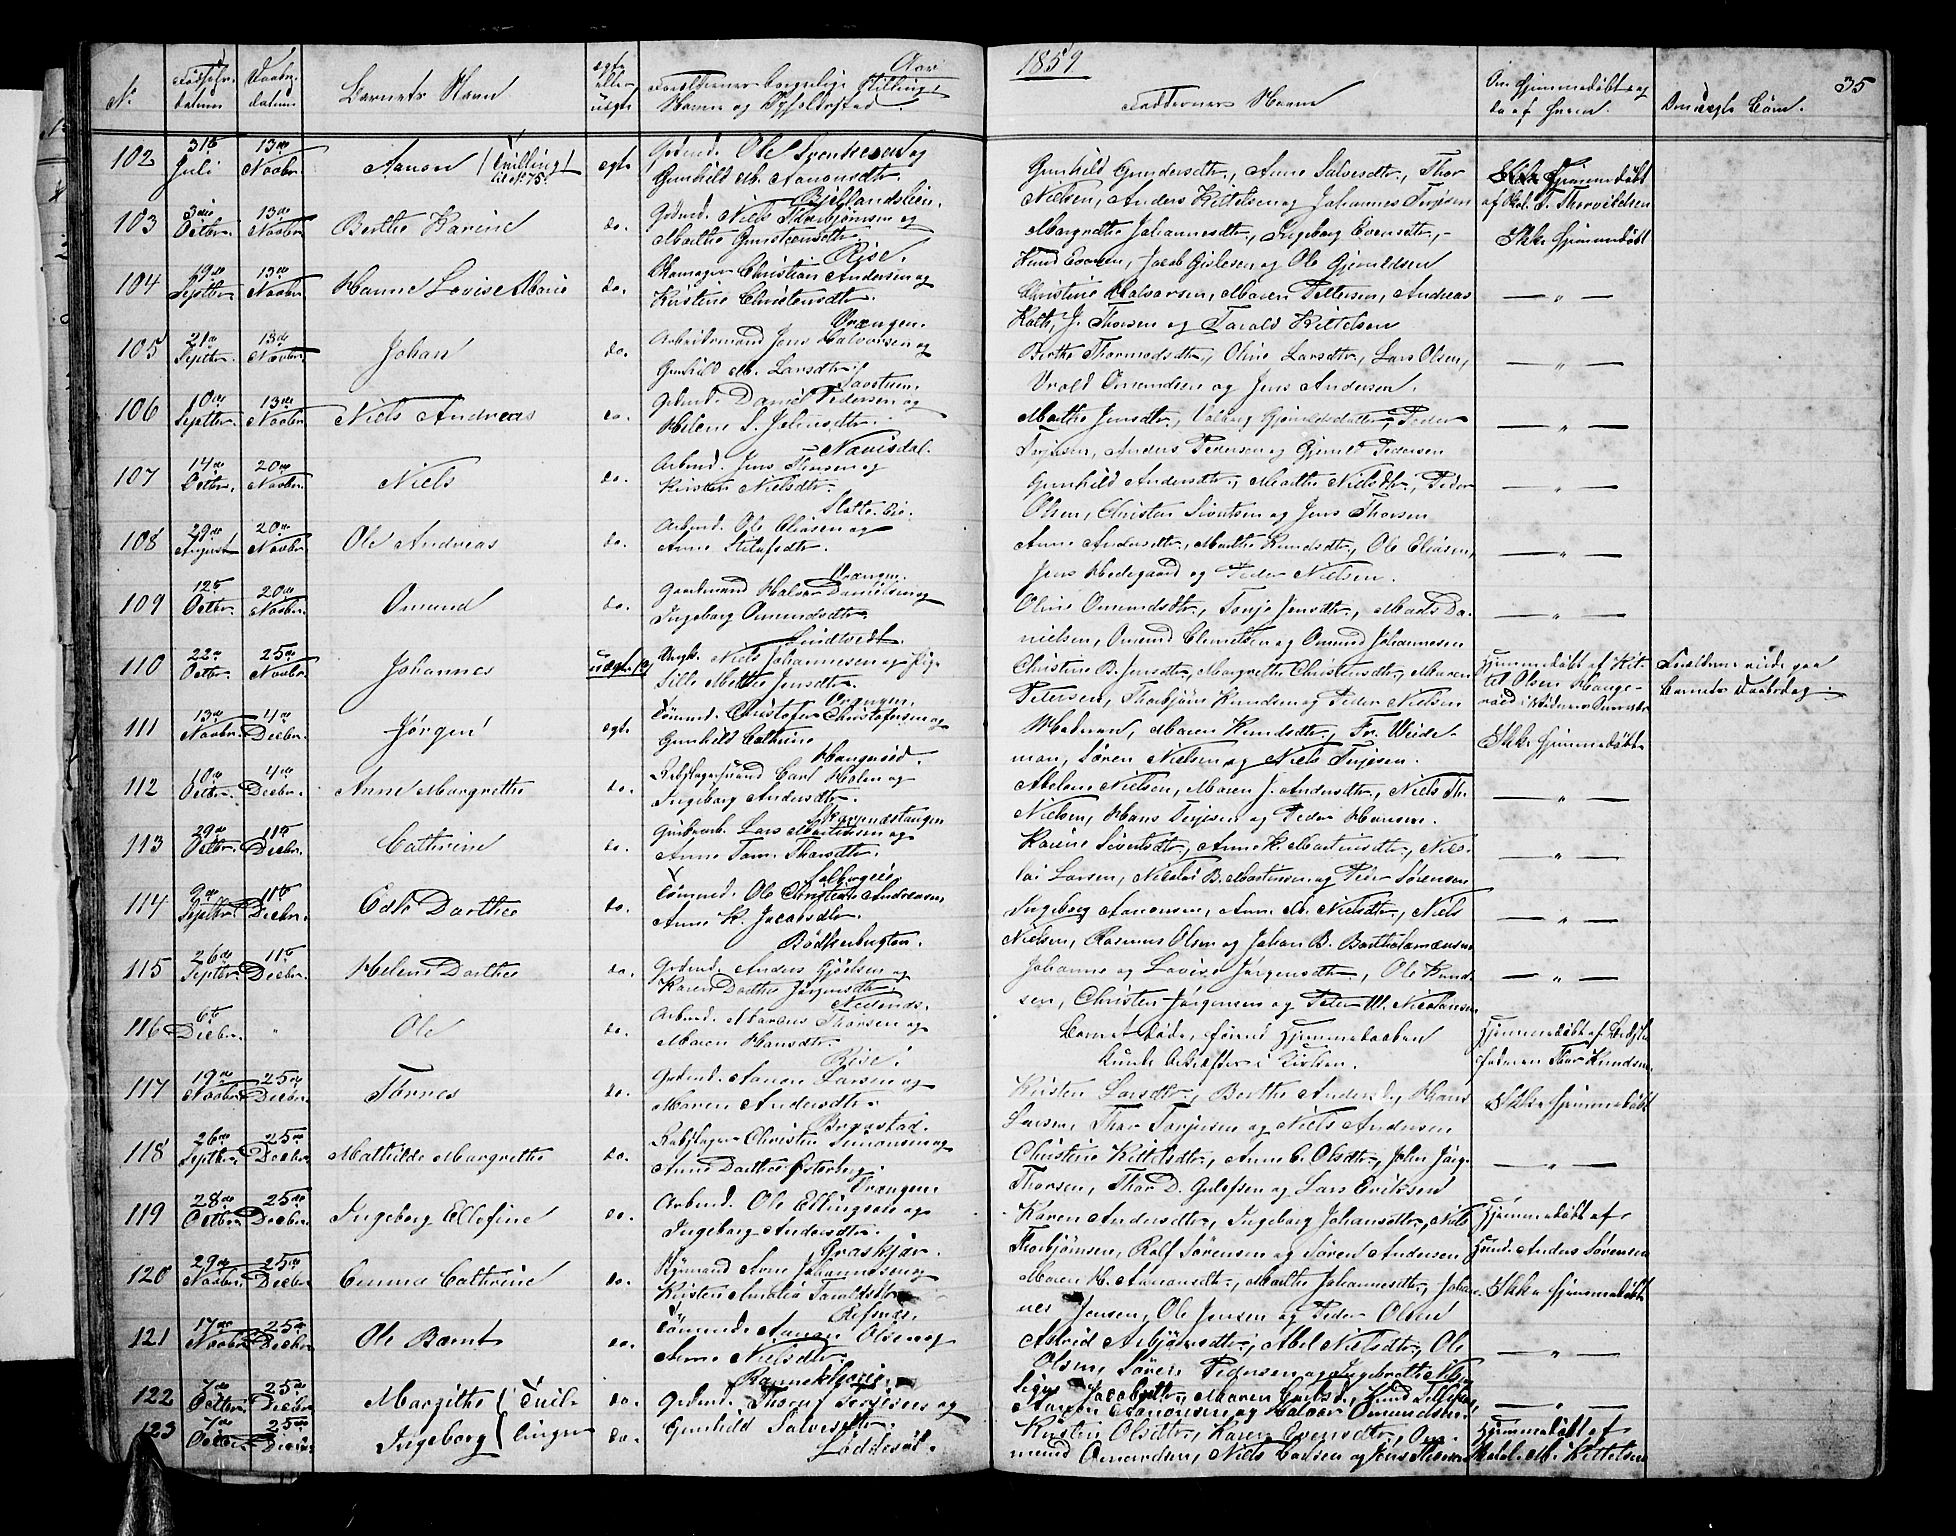 Aar 1859 35
No Fødsels- datum Daabs- datum Barnets Navn egte eller uegte Forældrenes borgerlige Stilling, Navne og Opholdssted. Faddernes Navne Om hjemmedøbt og da af hvem. Om uegte Børn.
102 31te Juli 13de Novbr. Aanon (Tvilling til N. 75.) egte Grdmd. Ole Svenkesen og
Gunhild M. Aanonsdtr. Bjellandslien.
Gunhild Gundersdtr., Anne Salvesdtr., Thor
Nielsen, Anders Kittelsen og Johannes Terjesen
Ikke Hjemmedøbt
af Skol. T. Thorvildsen
103 3die Octbr. 13de Novbr. Berthe Karine do. Grdmd. Niels Thorbjørnsen og
Marthe Gunsteensdtr. Rise.
Margrethe Johannesdtr., Ingeborg Evensdtr.,
Knud Evensen, Jacob Gislesen og Ole Gjeruldsen
Ikke hjemmedøbt
104 19de Septbr. 13de Novbr. Hanne Lovise Marie do. Skomager Christian Andersen og
Kristine Christensdtr. Vrængen.
Christine Halvorsen, Maren Pettersen, Andreas
Holth, J. Thorsen og Tarald Kittelsen
— " —
105 21de Septbr. 13de Novbr. Johan do. Arbeidsmand Jens Halvorsen og
Gunhild M. Larsdtr.
Berthe Thormodsdtr., Oline Larsdtr., Lars Olsen,
Vrold Omundsen og Jens Andersen.
— " —
106 10de Septbr. 13de Novbr. Niels Andreas do. Grdmd. Daniel Pedersen og
Helene S. Johnsdtr. Navisdal.
Marthe Jensdtr., Valborg Gjeruldsdatter, Peder
Terjesen, Anders Pedersen og Gjeruld Pedersen
— " —
107 14de Octbr. 20de Novbr. Niels do. Arbmd. Jens Thorsen og
Kirsten Nielsdtr.
Gunhild Andersdtr., Marthe Nielsdtr., Peder
Olsen, Christen Sivertsen og Jens Thorsen
— " —
108 29de August 20de Novbr. Ole Andreas do. Arbmd. Ole Eliasen og
Anne Vrængen.
Anne Andersdtr., Marthe Knudsdtr., Ole Eliasen,
Jens Hedegaard og Peder Nielsen.
— " —
109 12te Octbr. 20de Novbr. Omund do. Halvor Danielsen og
Ingeborg Omundsdtr. Lindtvedt.
Oline Omundsdtr., Tonje Jensdtr., Mads Da-
nielsen, Omund Clemetsen og Omund Johannesen
— " —
110 22de Octbr. 25de Novbr. Johannes uegte Ungk. Niels Johannesen og Pige
Sille Mettee Jensdtr. Vrængen.
Christine B. Jensdtr., Margrethe Christensdtr., Maren
Petersen, Thorbjørn Knudsen og Peder Nielsen
Hjemmedøbt af Kit-
til Olsen Hange-
Forældrene viede paa
Barnets Daabsdag.
111 13de Novbr. 4de Decbr. Jørgen egte Tømmd. Christofer Christofersen og
Gunhild Cathrine Hangerød.
Moderen, Maren Knudsdtr., Fr. Weide-
man, Søren Nielsen og Niels Terjesen.
Ikke hjemmedøbt
112 10de Octbr. 4de Decbr. Anne Margrethe do. Rebslagersvend Carl Holm og
Ingeborg Andersdtr.
Abelone Nielsen, Maren J. Andersdtr., Niels Th.
Nielsen, Hans Terjesen og Peder Hansen.
— " —
113 29de Octbr. 11te Decbr. Cathrine do. Lars Martinsen og
Anne Tom. Thorsdtr.
Karine Sivertsdtr., Anne K. Martinsdtr., Nico-
lai Larsen, Nicolai B. Martinsen og Peder Sørensen
— " —
114 9de Septbr. 11te Decbr. Dorthea do. Tømmd. Ole Christian Andreasen,
Anne K. Jacobsdtr. Bødkerbugten.
Ingeborg Aanonsen, Anne M. Nielsdtr., Niels
Nielsen, Rasmus Olsen og Johan B. Bartholomæusen
— " —
115 26de Septbr. 11te Decbr. Helene Dorthea do. Grdmd. Anders Gjøelsen og
Karen Dorthea Jørgensdtr. Nedenæs.
Johanne og Lovise Jørgensdtr., Ole Knud-
sen, Christen Jørgensen og Peter W. Nicolaisen
— " —
116 6te Decbr. " Ole do. Arbmd. Marcus Thorsen og
Maren Hansdtr. Rise.
Barnet døde, førend Hjemmedaaben
kunde bekræftes i Kirken.
Hjemmedøbt af
Thor Knudsen
117 19de Novbr. 25de Decbr. Tønnes do. Grdmd. Aanon Larsen og
Maren Andersdtr. Brgastad.
Kirsten Larsdtr., Berthe Andersdtr., Hans
Larsen, Thor Torjusen og Niels Andersen
Ikke hjemmedøbt
118 26de Septbr. 25de Decbr. Mathilde Margrethe do. Rebslager Christen Simonsen og
Anne Dorthea Østerberg. Vrængen.
Christine Kittelsdtr., Anne C. Olsdtr., John Jørg.
Thorsen, Thor D. Gulofsen og Lars Eriksen
— " —
119 28de Octbr. 25de Decbr. Ingeborg Ellefine do. Arbmd. Ole Ellingsen og
Ingeborg Andersdtr. Græskjær.
Karen Andersdtr., Ingeborg Johansdtr., Niels
Thorbjørnsen, Rolf Sørensen og Søren Andersen
Hjemmedøbt af
Anders Sørensen
120 29de Novbr. 25de Decbr. Emma Cathrine do. Arne Johannesen og
Kirsten Amalia Taraldsdtr. Refsnes.
Maren H. Aanonsdtr., Marthe Johannesdtr., Johan-
nes Jensen, Ole Jensen og Peder Olsen
Ikke hjemmedøbt
121 17de Novbr. 25de Decbr. Ole Bernt do. Tømmd. Aanon Olsen og
Anne Nielsdtr.
Astrid Asbjørnsdtr., Abel Nielsdtr., Ole
Olsen, Søren Pedersen og
— " —
122 7de Octbr. 25de Decbr. Margithe (Tvil- do. Grdmd. Thoruf Terjesen og
Jacobsdtr., Maren
Aanonsen og Halvor Omundsen
— " —
123 7de Octbr. 25de Decbr. Ingeborg (linger do. Gunhild Salvesdtr. Løddesøl.
Kirstine Olsdtr., Karen Evensdtr., Om-
mund Omundsen, Niels Carlsen og Jens Thorsen
Hjemmedøbt af
M. Kittelsen